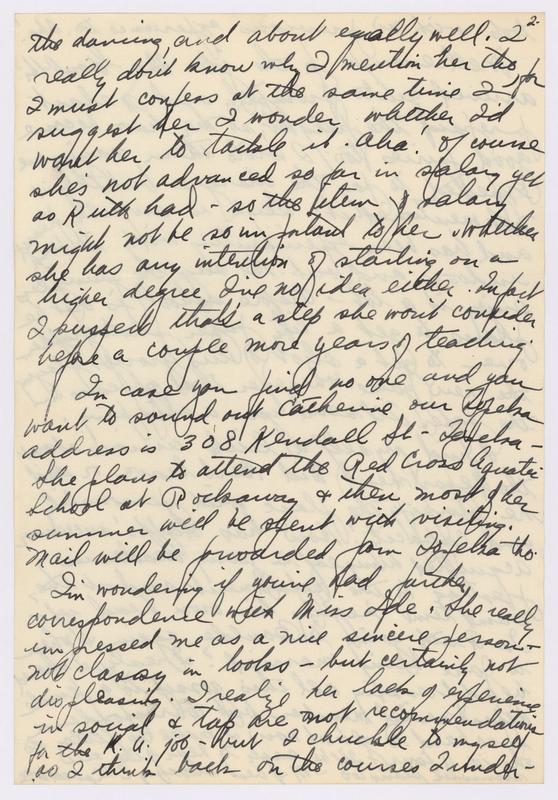 2-
the dancing, and about equally well. I
really don't know why I mention her tho, for
I must confess at the same time I
suggest her I wonder whether I'd
want her to tackle it. Aha! Of course
she's not advanced so far in salary yet
as Ruth had - so the item of salary
might not be so important to her. Whether
she has any intention of starting on a
higher degree I've no idea either. In fact
I suspect that's a step she won't consider
before a couple more years of teaching.
In case you find no one and you
want to sound out Catherine our Topeka
address is 308 Kendall St - Topeka -
She plans to attend the Red Cross Aquatic
School at Rockaway & then most of her
summer will be spent with visiting.
Mail will be forwarded from Topeka tho.
I'm wondering if you've had further
correspondence with Miss Ide. She really
impressed me as a nice sincere person -
not classy in looks - but certainly not
displeasing. I realize her lack of experience
in social & tap are not recommendations
for the K.U. job - but I chuckle to myself
as I think back on the courses I under-